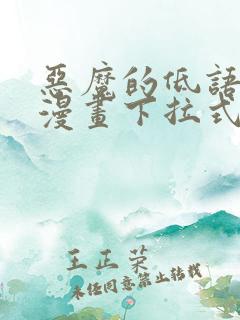 惡魔的低語
漫畫下拉式
王正荣
未经同意禁止转载